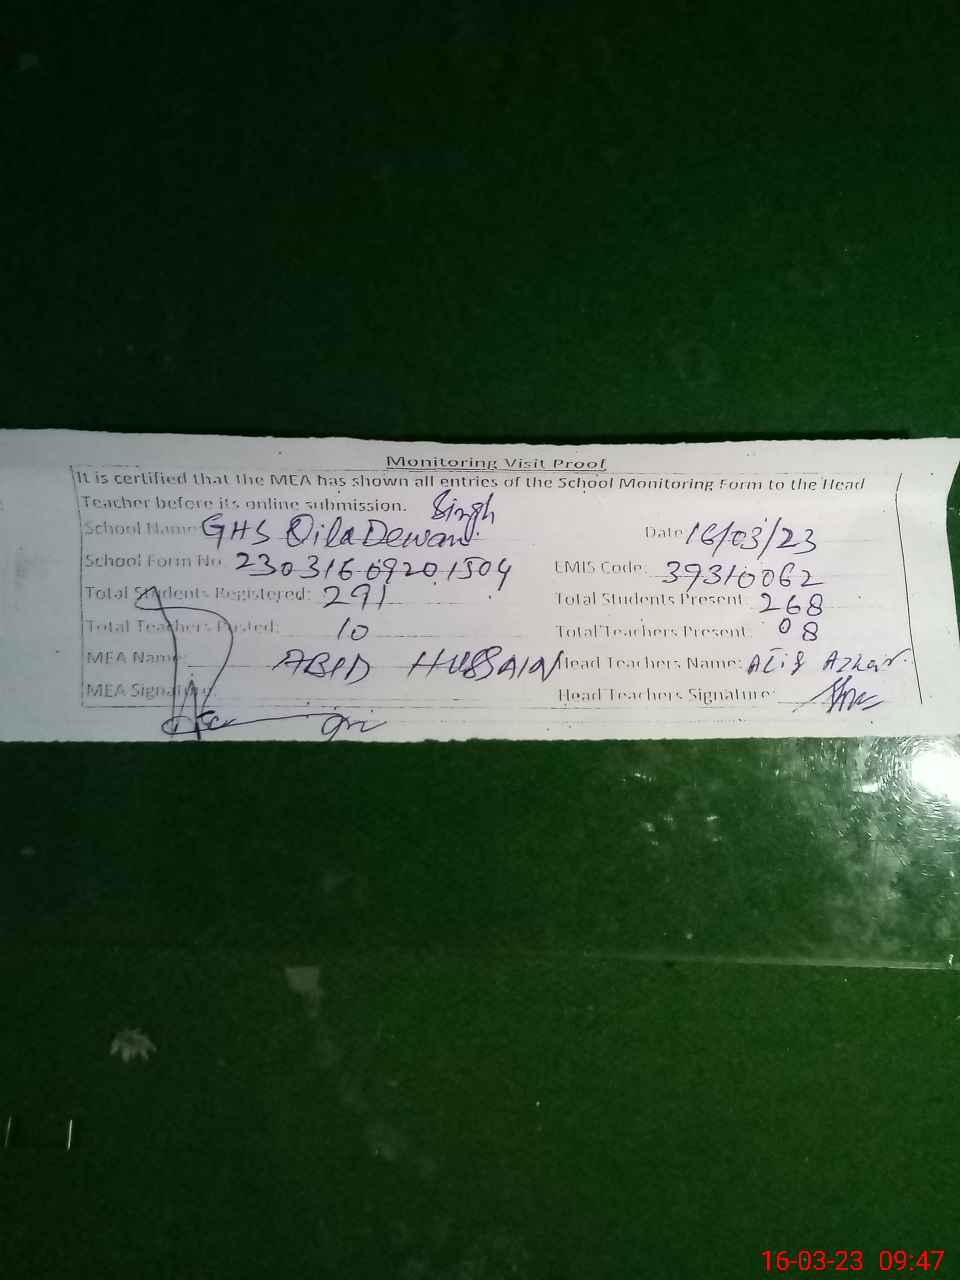 Monitoring Visit Proof
It is certified that the MEA has shown all entries of the School Monitoring Form to the Head
Teacher before its online submission. Singh
School Name GHS Qila Dewan Date 16/03/23
School Form No. 23031609201504 EMIS Code: 39310062
Total Students Registered: 291 Total Students Present: 268
Total Teachers Posted: 10 Total Teachers Present: 08
MEA Name: ABID HUSSAIN Head Teachers Name: Atif Azhar.
MEA Signature: Head Teachers Signature:
16-03-23 09:47